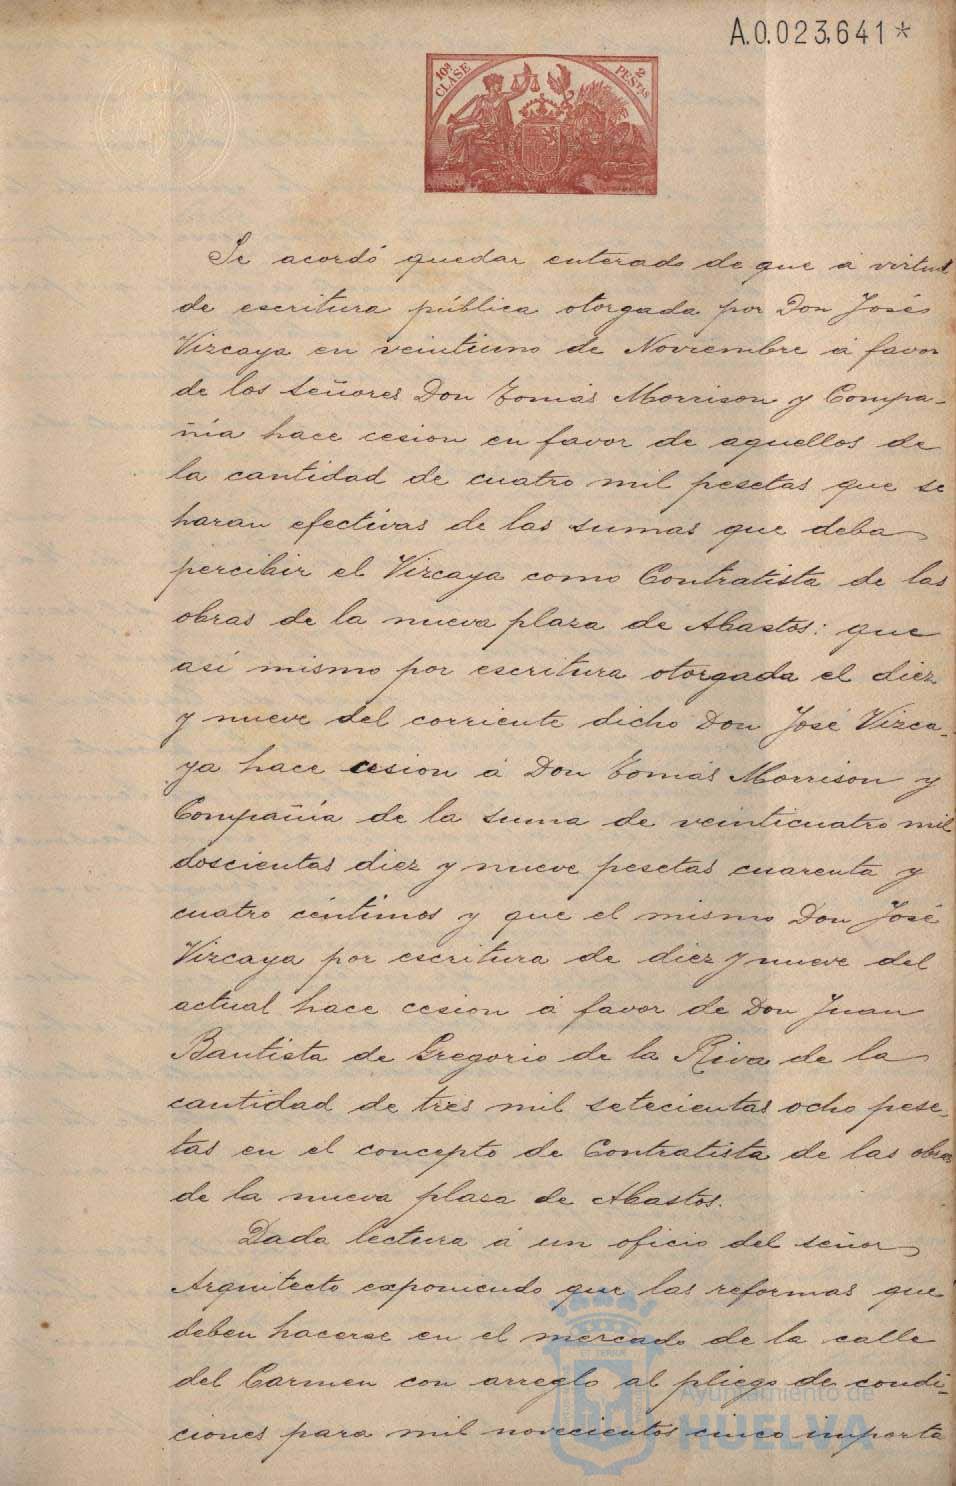 A.0.023,641*
10ª CLASE
2 PESETAS
Se acordó quedar enterado de que á virtud
de escritura pública otorgada por Don José
Vizcaya en veintiuno de Noviembre á favor
de los señores Don Tomás Morrison y Compa-
ñía hace cesion en favor de aquellos de
la cantidad de cuatro mil pesetas que se
haran efectivas de las sumas que deba
percibir el Vizcaya como Contratista de las
obras de la nueva plaza de Abastos: que
así mismo por escritura otorgada el diez
y nueve del corriente dicho Don José Vizca-
ya hace cesion á Don Tomás Morrison y
Compañía de la suma de veinticuatro mil
doscientas diez y nueve pesetas cuarenta y
cuatro céntimos y que el mismo Don José
Vizcaya por escritura de diez y nueve del
actual hace cesion á favor de Don Juan
Bautista de Gregorio de la Riva de la
cantidad de tres mil setecientas ocho pese-
tas en el concepto de Contratista de las obras
de la nueva plaza de Abastos.
Dada lectura á un oficio del señor
Arquitecto exponiendo que las reformas que
deben hacerse en el mercado de la calle
del Carmen con arreglo al pliego de condi-
ciones para mil novecientos cinco importa
Ayuntamiento de
HUELVA